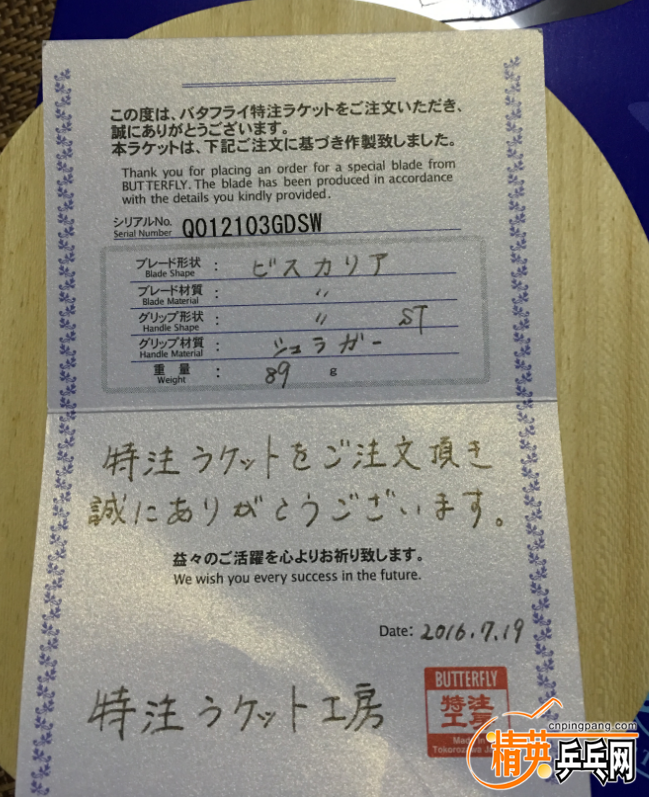 この度は、バタフライ特注ラケットをご注文いただき、
誠にありがとうございます。
本ラケットは、下記ご注文に基づき作製致しました。
Thank you for placing an order for a special blade from
BUTTERFLY. The blade has been produced in accordance
with the details you kindly provided.
シリアルNo.
Serial Number QO12103GDSW
ブレード形状 : ビスカリア
Blade Shape
ブレード材質 : 〃
Blade Material
グリップ形状 : 〃 ST
Handle Shape
グリップ材質 : シュラガー
Handle Material
重量 : 89 g
Weight
特注ラケットをご注文頂き
誠にありがとうございます。
益々のご活躍を心よりお祈り致します。
We wish you every success in the future.
Date: 2016.7.19
特注ラケット工房
BUTTERFLY
特注
工房
Made in
Tokorozawa
cnpingpang.com
精英乒乓网